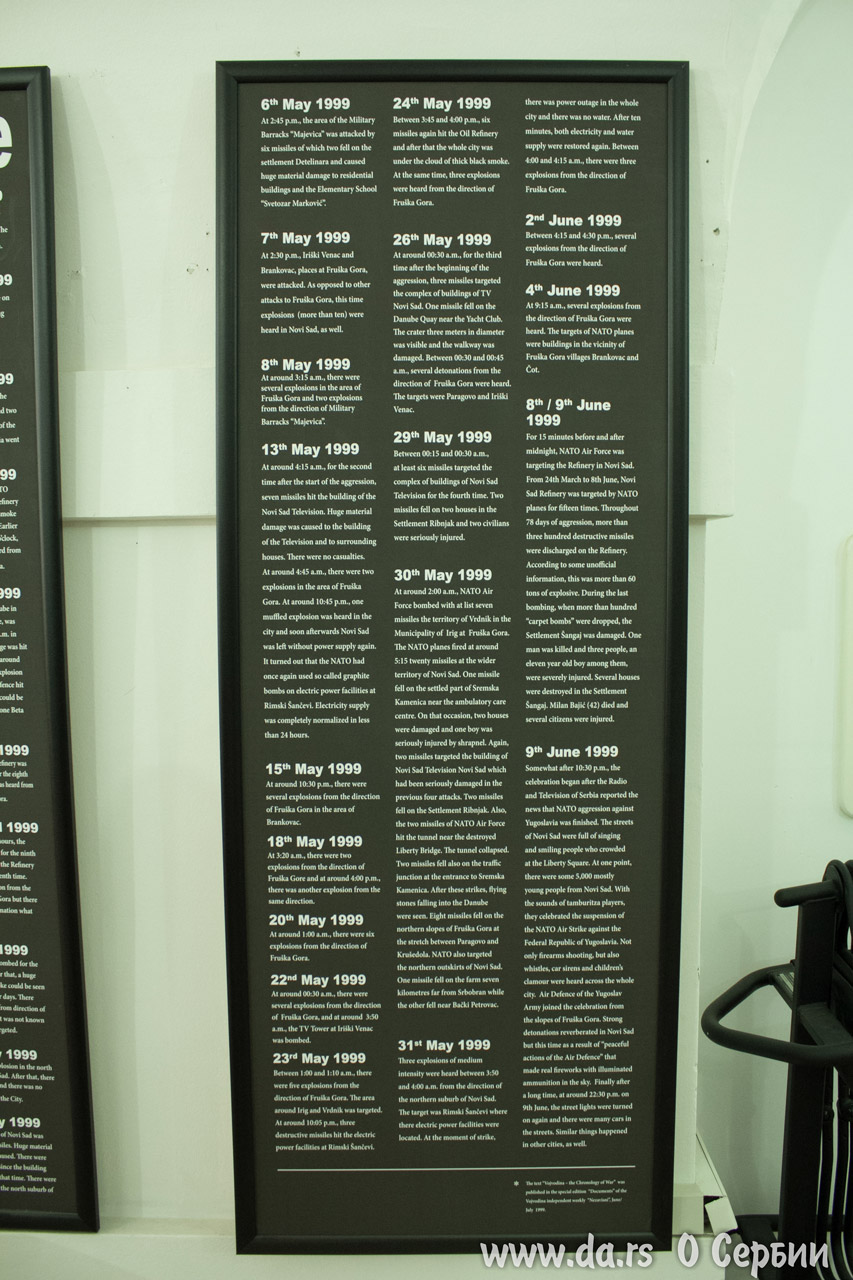 e
he
99
on
99
he
d two
of the
a went
99
TO
efinery
smoke
Earlier
ed from
a.
999
ube in
e, was
.m. in
ge was hit
around
xplosion
fence hit
could be
one Beta
1999
efinery was
r the eighth
as heard from
ora.
1999
ours, the
for the ninth
the Refinery
enth time.
on from the
Gora but there
nation what
1999
ombed for the
r that, a huge
ke could be seen
r days. There
from direction of
t was not known
rgeted.
y 1999
losion in the north
Sad. After that, there
nd there was no
the City.
y 1999
of Novi Sad was
siles. Huge material
ussed. There were
ince the building
that time. There were
the north suburb of
6th May 1999
At 2:45 p.m., the area of the Military
Barracks "Majevica" was attacked by
six missiles of which two fell on the
settlement Detelinara and caused
huge material damage to residential
buildings and the Elementary School
"Svetozar Marković".
7th May 1999
At 2:30 p.m., Iriški Venac and
Brankovac, places at Fruška Gora,
were attacked. As opposed to other
attacks to Fruška Gora, this time
explosions (more than ten) were
heard in Novi Sad, as well.
8th May 1999
At around 3:15 a.m., there were
several explosions in the area of
Fruška Gora and two explosions
from the direction of Military
Barracks "Majevica".
13th May 1999
At around 4:15 a.m., for the second
time after the start of the aggression,
seven missiles hit the building of the
Novi Sad Television. Huge material
damage was caused to the building
of the Television and to surrounding
houses. There were no casualties.
At around 4:45 a.m., there were two
explosions in the area of Fruška
Gora. At around 10:45 p.m., one
muffled explosion was heard in the
city and soon afterwards Novi Sad
was left without power supply again.
It turned out that the NATO had
once again used so called graphite
bombs on electric power facilities at
Rimski Šančevi. Electricity supply
was completely normalized in less
than 24 hours.
15th May 1999
At around 10:30 p.m., there were
several explosions from the direction
of Fruška Gora in the area of
Brankovac.
18th May 1999
At 3:20 a.m., there were two
explosions from the direction of
Fruška Gore and at around 4:00 p.m.,
there was another explosion from the
same direction.
20th May 1999
At around 1:00 a.m., there were six
explosions from the direction of
Fruška Gora.
22nd May 1999
At around 00:30 a.m., there were
several explosions from the direction
of Fruška Gora, and at around 3:50
a.m., the TV Tower at Iriški Venac
was bombed.
23rd May 1999
Between 1:00 and 1:10 a.m., there
were five explosions from the
direction of Fruška Gora. The area
around Irig and Vrdnik was targeted.
At around 10:05 p.m., three
destructive missiles hit the electric
power facilities at Rimski Šančevi.
24th May 1999
Between 3:45 and 4:00 p.m., six
missiles again hit the Oil Refinery
and after that the whole city was
under the cloud of thick black smoke.
At the same time, three explosions
were heard from the direction of
Fruška Gora.
26th May 1999
At around 00:30 a.m., for the third
time after the beginning of the
aggression, three missiles targeted
the complex of buildings of TV
Novi Sad. One missile fell on the
Danube Quay near the Yacht Club.
The crater three meters in diameter
was visible and the walkway was
damaged. Between 00:30 and 00:45
a.m., several detonations from the
direction of Fruška Gora were heard.
The targets were Paragovo and Iriški
Venac.
29th May 1999
Between 00:15 and 00:30 a.m.,
at least six missiles targeted the
complex of buildings of Novi Sad
Television for the fourth time. Two
missiles fell on two houses in the
Settlement Ribnjak and two civilians
were seriously injured.
30th May 1999
At around 2:00 a.m., NATO Air
Force bombed with at list seven
missiles the territory of Vrdnik in the
Municipality of Irig at Fruška Gora.
The NATO planes fired at around
5:15 twenty missiles at the wider
territory of Novi Sad. One missile
fell on the settled part of Sremska
Kamenica near the ambulatory care
centre. On that occasion, two houses
were damaged and one boy was
seriously injured by shrapnel. Again,
two missiles targeted the building of
Novi Sad Television Novi Sad which
had been seriously damaged in the
previous four attacks. Two missiles
fell on the Settlement Ribnjak. Also,
the two missiles of NATO Air Force
hit the tunnel near the destroyed
Liberty Bridge. The tunnel collapsed.
Two missiles fell also on the traffic
junction at the entrance to Sremska
Kamenica. After these strikes, flying
stones falling into the Danube
were seen. Eight missiles fell on the
northern slopes of Fruška Gora at
the stretch between Paragovo and
Krušedola. NATO also targeted
the northern outskirts of Novi Sad.
One missile fell on the farm seven
kilometres far from Srbobran while
the other fell near Bački Petrovac.
31st May 1999
Three explosions of medium
intensity were heard between 3:50
and 4:00 a.m. from the direction of
the northern suburb of Novi Sad.
The target was Rimski Šančevi where
there electric power facilities were
located. At the moment of strike,
there was power outage in the whole
city and there was no water. After ten
minutes, both electricity and water
supply were restored again. Between
4:00 and 4:15 a.m., there were three
explosions from the direction of
Fruška Gora.
2nd June 1999
Between 4:15 and 4:30 p.m., several
explosions from the direction of
Fruška Gora were heard.
4th June 1999
At 9:15 a.m., several explosions from
the direction of Fruška Gora were
heard. The targets of NATO planes
were buildings in the vicinity of
Fruška Gora villages Brankovac and
Čot.
8th / 9th June
1999
For 15 minutes before and after
midnight, NATO Air Force was
targeting the Refinery in Novi Sad.
From 24th March to 8th June, Novi
Sad Refinery was targeted by NATO
planes for fifteen times. Throughout
78 days of aggression, more than
three hundred destructive missiles
were discharged on the Refinery.
According to some unofficial
information, this was more than 60
tons of explosive. During the last
bombing, when more than hundred
"carpet bombs" were dropped, the
Settlement Šangaj was damaged. One
man was killed and three people, an
eleven year old boy among them,
were severely injured. Several houses
were destroyed in the Settlement
Šangaj. Milan Bajić (42) died and
several citizens were injured.
9th June 1999
Somewhat after 10:30 p.m., the
celebration began after the Radio
and Television of Serbia reported the
news that NATO aggression against
Yugoslavia was finished. The streets
of Novi Sad were full of singing
and smiling people who crowded
at the Liberty Square. At one point,
there were some 5,000 mostly
young people from Novi Sad. With
the sounds of tamburitza players,
they celebrated the suspension of
the NATO Air Strike against the
Federal Republic of Yugoslavia. Not
only firearms shooting, but also
whistles, car sirens and children's
clamour were heard across the whole
city. Air Defence of the Yugoslav
Army joined the celebration from
the slopes of Fruška Gora. Strong
detonations reverberated in Novi Sad
but this time as a result of "peaceful
actions of the Air Defence" that
made real fireworks with illuminated
ammunition in the sky. Finally after
a long time, at around 22:30 p.m. on
9th June, the street lights were turned
on again and there were many cars in
the streets. Similar things happened
in other cities, as well.
* The text "Vojvodina – the Chronology of War" was
published in the special edition "Documents" of the
Vojvodina independent weekly "Nezavisni", June/
July 1999.
www.da.rs О Сербии